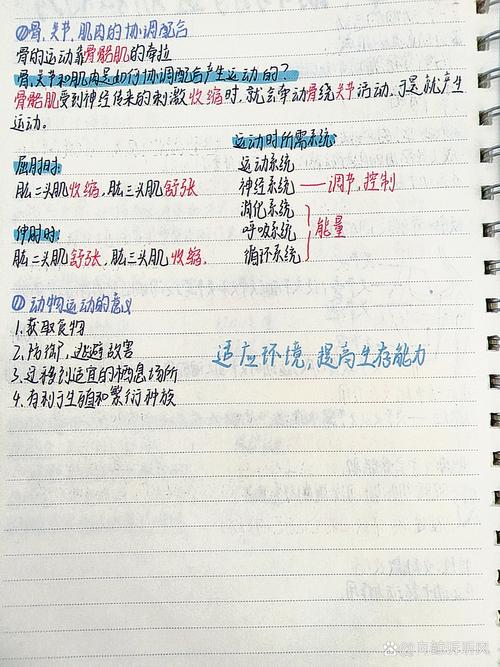 ⑩骨、关节、肌肉的协调配合
骨的运动靠骨骼肌的牵拉
骨、关节和肌肉是如何协调配合产生运动的?
骨骼肌受到神经传来的刺激收缩时,就会牵动骨绕关节活动,于是就产生
运动。
屈肘时:
肱二头肌收缩,肱三头肌舒张
伸肘时:
肱二头肌舒张,肱三头肌收缩.
运动时所需系统:
运动系统
神经系统——调节,控制
消化系统
呼吸系统 能量
循环系统
⑪动物运动的意义
1.获取食物
2.防御,逃避敌害
3.迁移到适宜的栖息场所
4.有利于生殖和繁衍种族
适应环境,提高生存能力